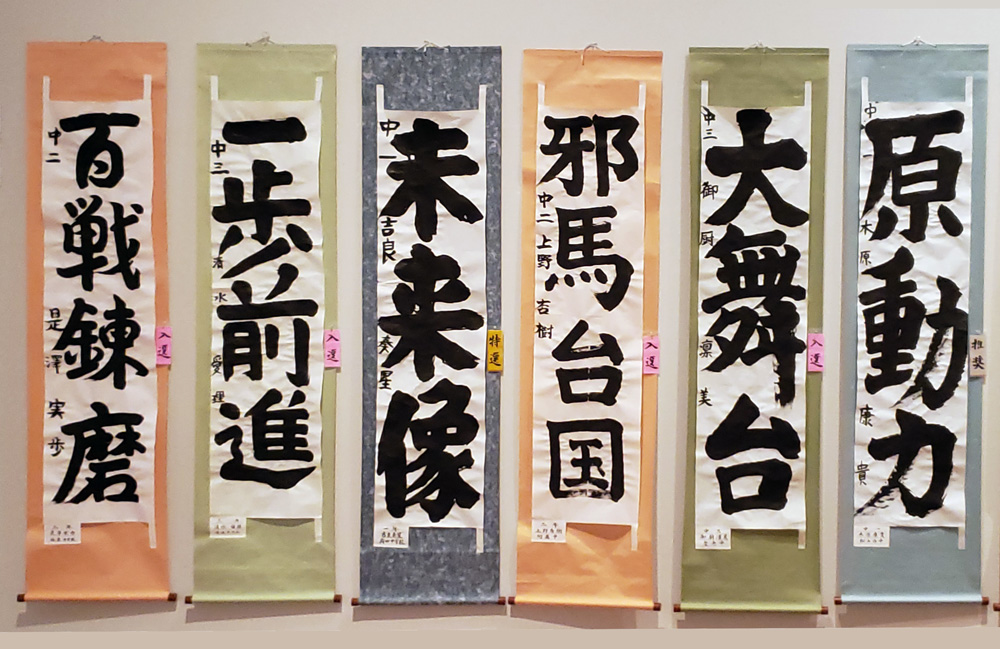 百戦錬磨
中二 是澤 実歩
入選
一歩前進
中三 清水 愛理
入選
未来像
中一 吉良 奏星
特選
邪馬台国
中二 上野 杏樹
入選
大舞台
中三 御厨 凛美
入選
原動力
木原 康貴
推奨